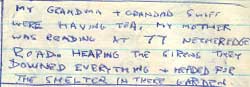 MY GRANDMA + GRANDAD SWIFT
WERE HAVING TEA, MY MOTHER
WAS READING AT 77 NETHEREDGE
ROAD. HEARING THE SIRENS THEY
DOWNED EVERYTHING + HEADED FOR
THE SHELTER IN THERE GARDEN